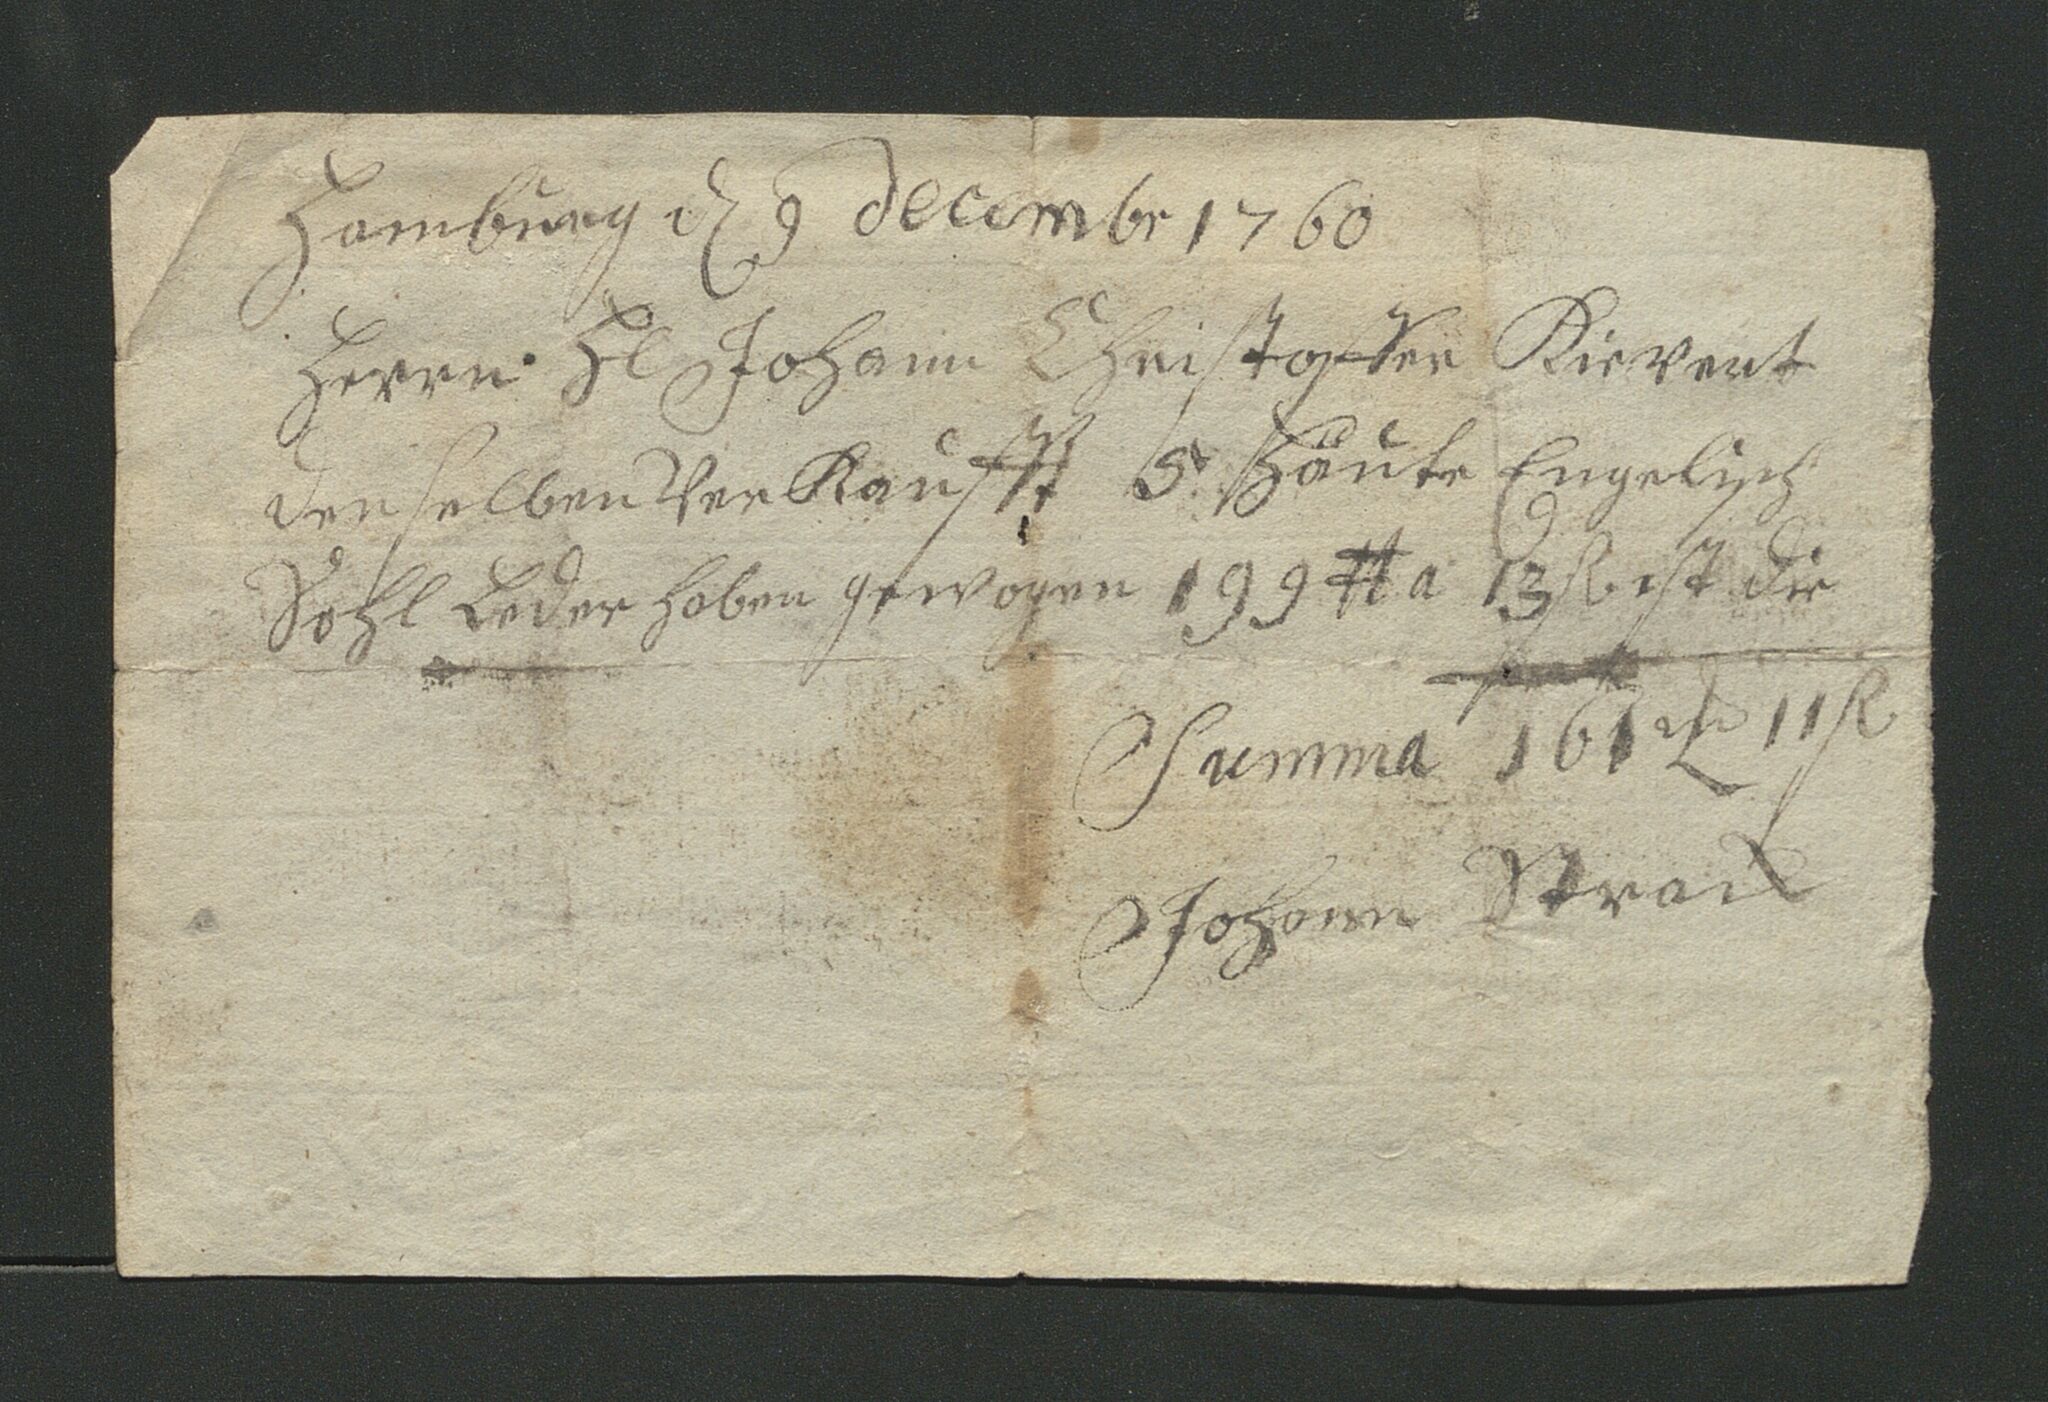 Hamburg d 9 decembr 1760
Herrn Hl Johann Christopffer Kievent
denselben Verkaufft 5 Häute Engelisch
Sohl Leder haben gewogen 199 ℔ a 13 ß ist die
Summa 161 mk 11 ß
Johann Strack